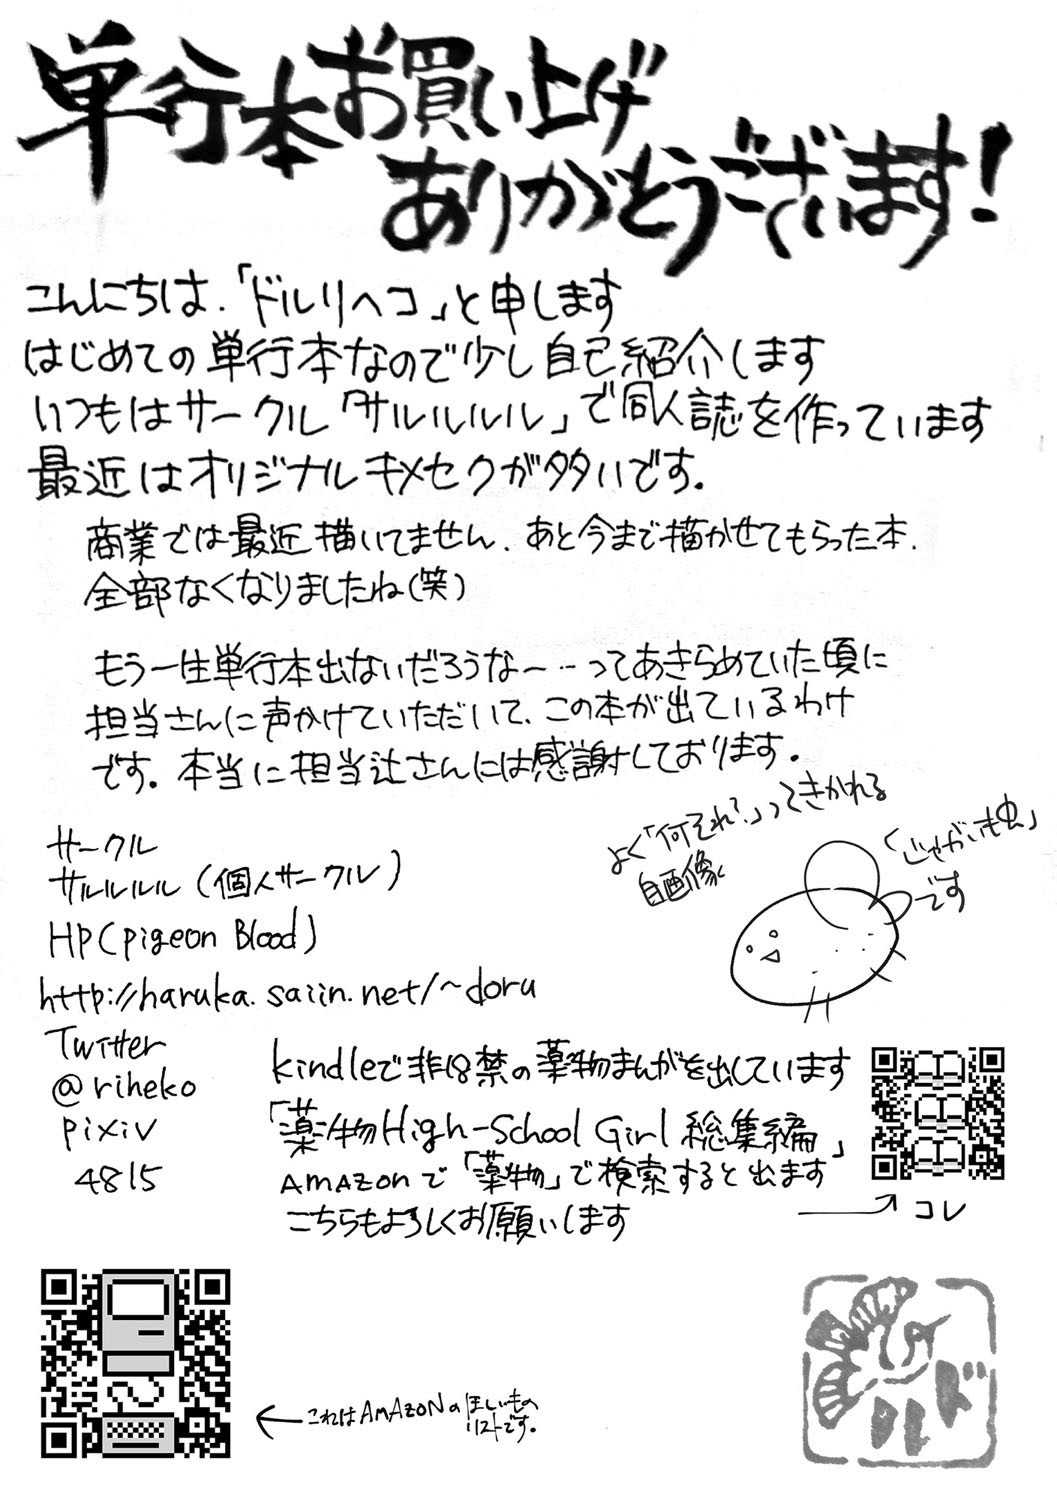 単行本お買い上げ
ありがとうございます!
こんにちは.「ドルリヘコ」と申します
はじめての単行本なので少し自己紹介します
いつもはサークル「サルルルル」で同人誌を作っています
最近はオリジナルキメセクが多いです.
商業では最近描いてません. あと今まで描かせてもらった本.
全部なくなりましたね(笑)
もう一生単行本出ないだろうな〜‥ってあきらめていた頃に
担当さんに声かけていただいて、この本が出ているわけ
です。本当に担当辻さんには感謝しております.
よく「何それ?」ってきかれる
自画像
「じゃがいも虫」
です
サークル
サルルルル (個人サークル)
HP(pigeon Blood)
http://haruka.saiin.net/~doru
Twitter
@riheko
pixiv
4815
kindleで非18禁の薬物まんがを出しています
「薬物High-School Girl 総集編」
AmAzonで「薬物」で検索すると出ます
こちらもよろしくお願いします
コレ
これはAMAZONのほしいもの
リストです。
ドル